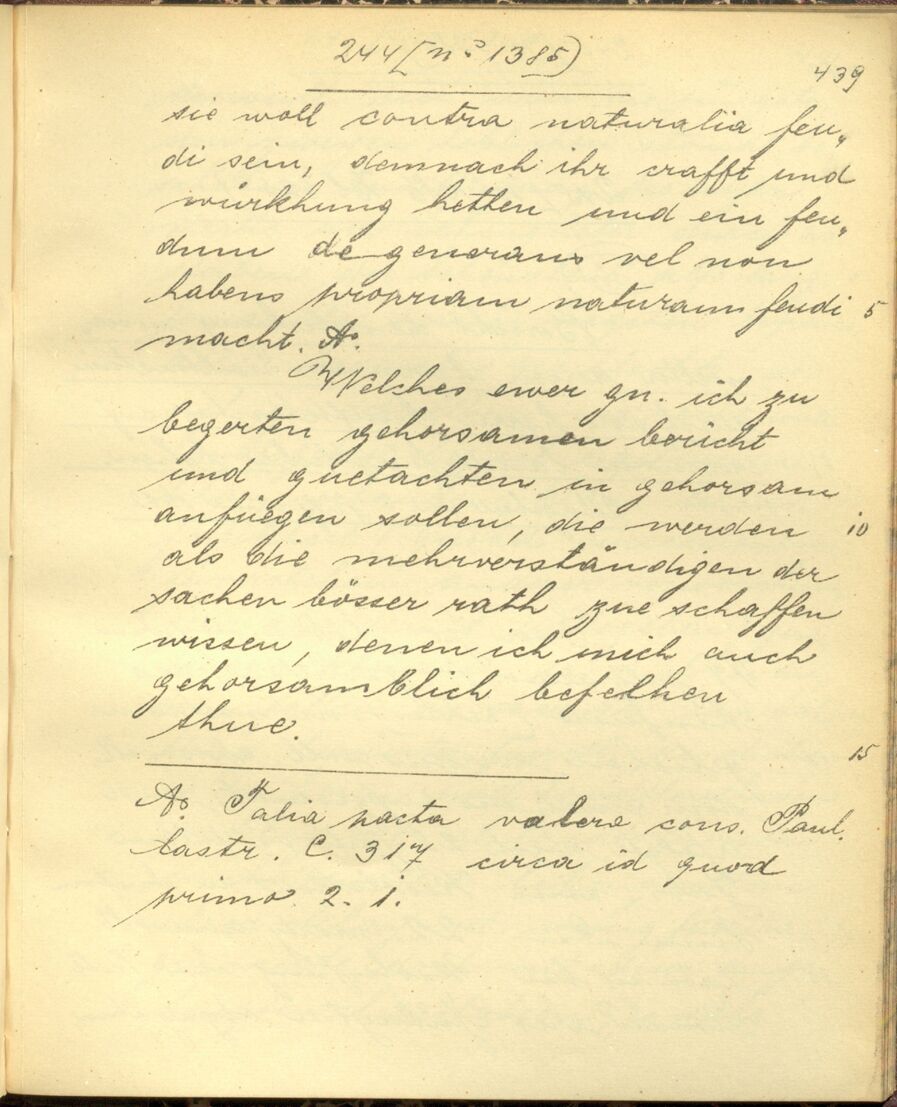 244 [nº 1385)
439
sie woll contra naturalia feu„
di sein, demnach ihr crafft und
würkhung hetten und ein feu„
dum degenerans vel non
habens propriam naturam feudi 5
macht. Aº.
Welches ewer gn. ich zu
begerten gehorsamen bericht
und guetachten in gehorsam
anfüegen sollen, die werden 10
als die mehrverständigen der
sachen bösser rath zue schaffen
wissen, denen ich mich auch
gehorsamblich befelhen
thue.
15
Aº. Talia pacta valere cons. Paul.
Castr. C. 317 circa id quod
primo. 2. i.